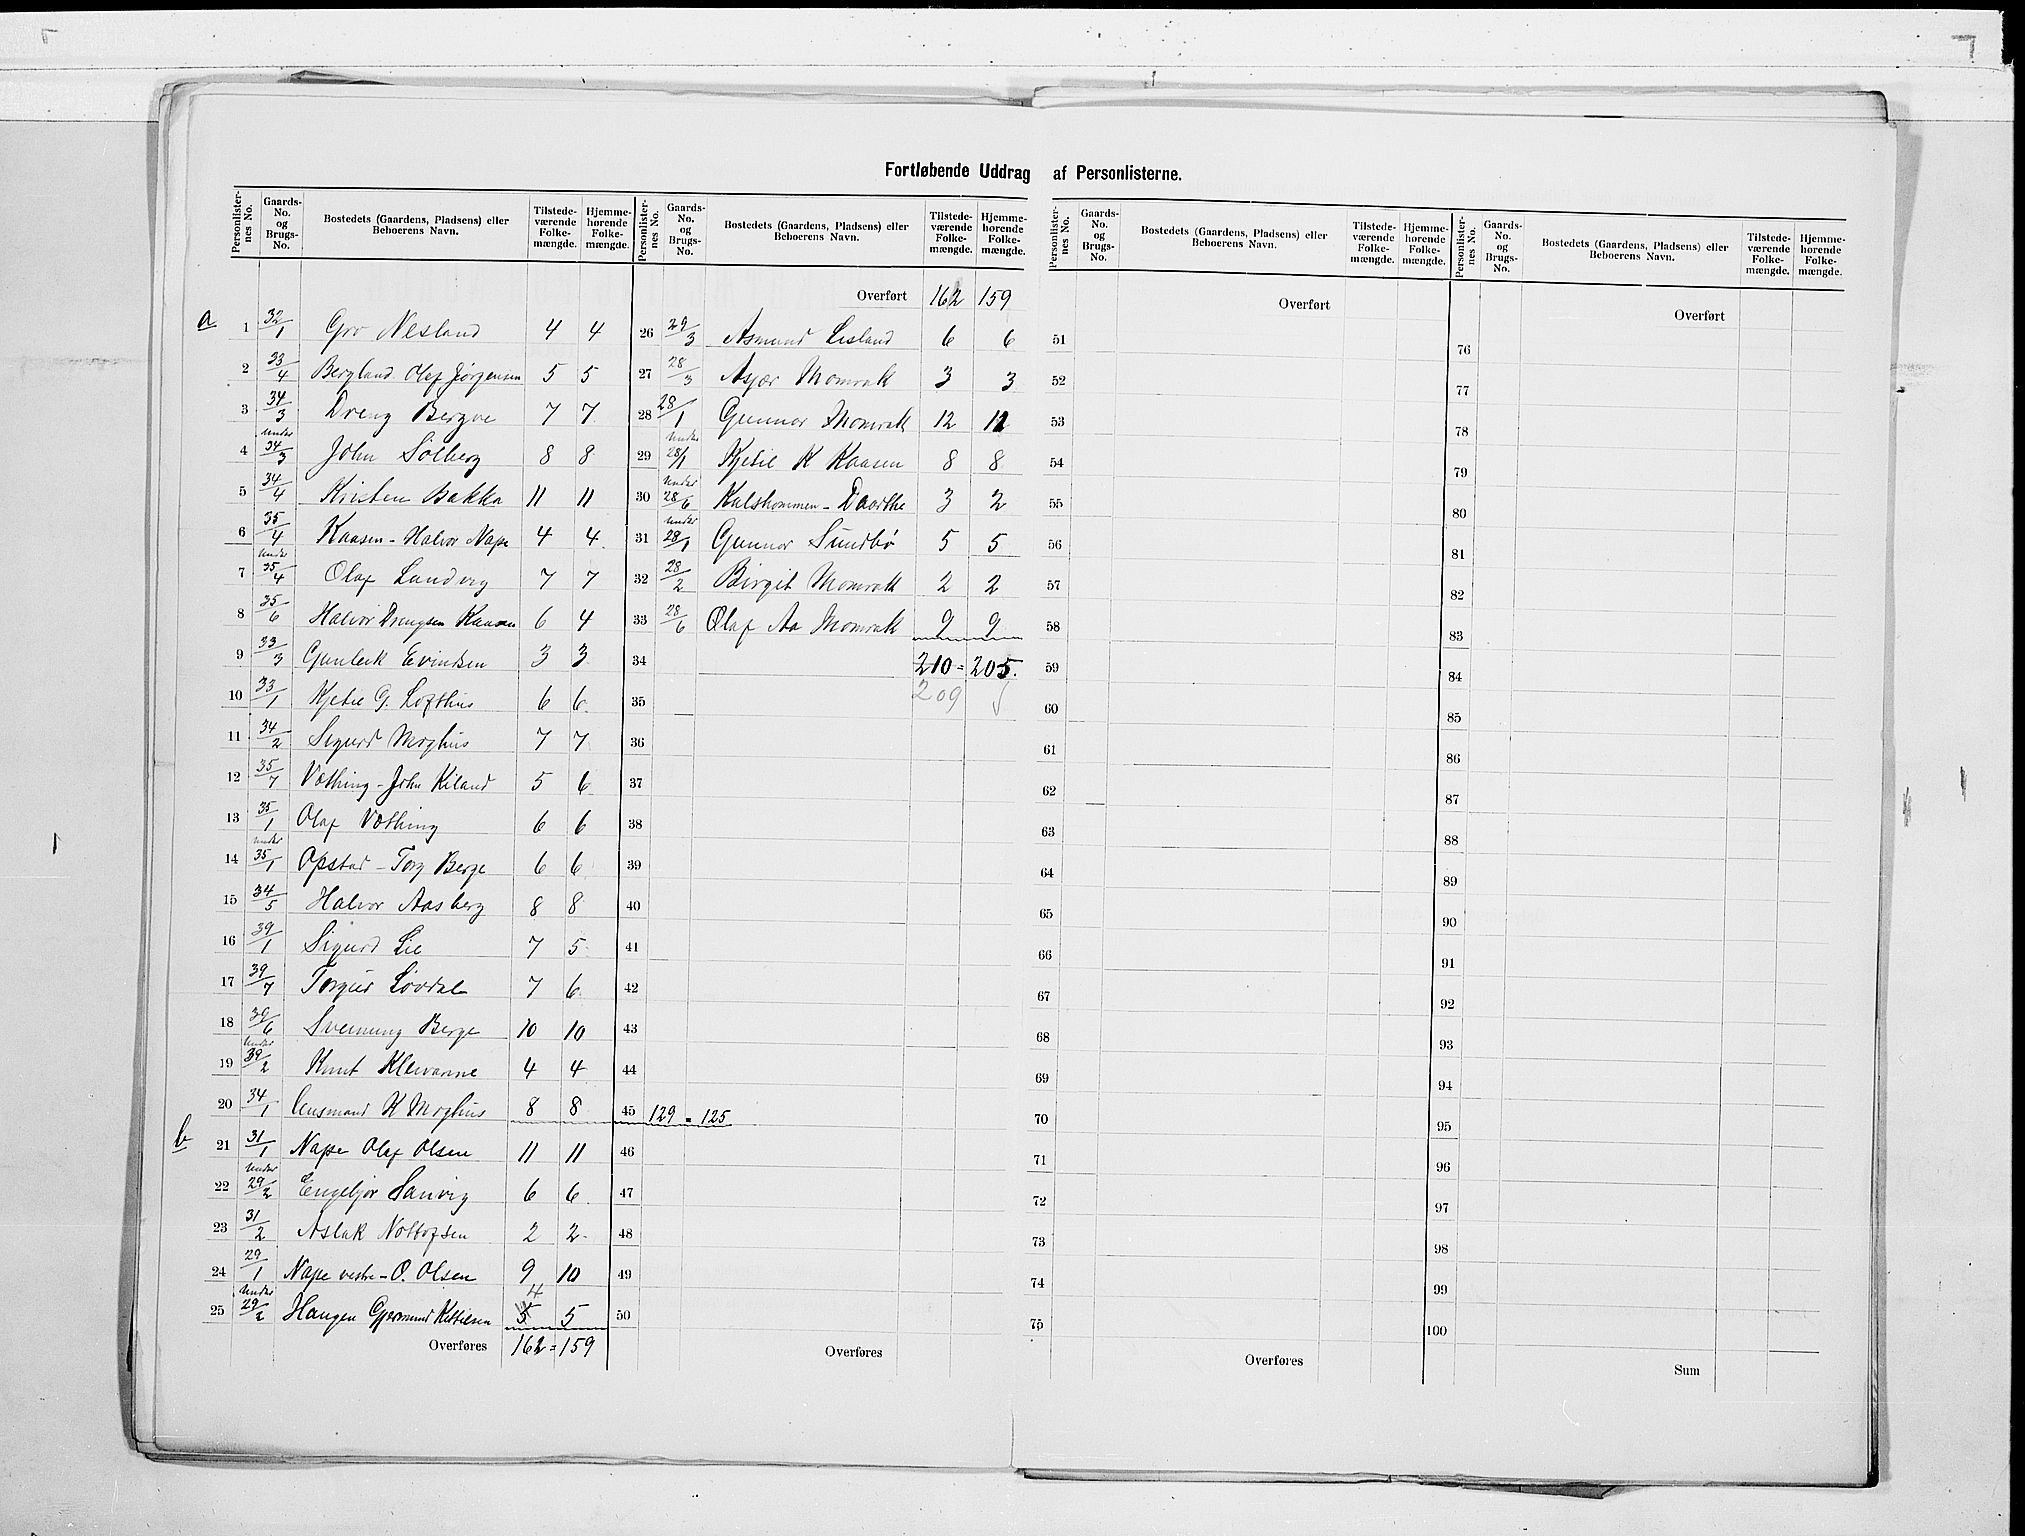 Fortløbende Uddrag af Personlisterne.
Personlister-nes No. Gaards-No. og Brugs-No. Bostedets (Gaardens, Pladsens) eller Beboerens Navn. Tilstede-værende Folke-mængde. Hjemme-hørende Folke-mængde.
a 1 32/1 Gro Nesland 4 4
2 33/4 Bergland Olef Jørgensen 5 5
3 34/3 Dreng Bergve 7 7
4 under 34/3 John Solberg 8 8
5 34/4 Kristen Bakka 11 11
6 35/4 Kaasen - Halvor Nape 4 4
7 under 35/4 Olaf Landvig 7 7
8 35/6 Halvor Drengsen Kaasen 6 4
9 33/3 Gunleik Evindsen 3 3
10 33/1 Kjetil G. Lofthus 6 6
11 34/2 Sigurd Moghus 7 7
12 35/7 Vøthing - John Kiland 5 6
13 35/1 Olaf Vøthing 6 6
14 under 35/1 Opstad - Torg Berge 6 6
15 34/5 Halvor Aasberg 8 8
16 39/1 Sigurd Lie 7 5
17 39/7 Torgus Løvdal 7 6
18 39/6 Sveinung Berge 10 10
19 under 39/2 Knut Klevanne 4 4
20 34/1 K Moghus 8 8
b 21 31/1 Nape Olaf Olsen 11 11
22 under 29/2 Engebjør Sanvig 6 6
23 31/2 Aslak Nottofsen 2 2
24 29/1 Nape vestre - O. Olsen 9 10
25 under 29/2 Haugen Gjermund Kettilsen 4 5 5
Overføres 162 = 159
Personlister-nes No. Gaards-No. og Brugs-No. Bostedets (Gaardens, Pladsens) eller Beboerens Navn. Tilstede-værende Folke-mængde. Hjemme-hørende Folke-mængde.
Overført 162 159
26 29/3 Asmund Lisland 6 6
27 28/3 Asjer Momrak 3 3
28 28/1 Gunnar Momrak 12 12
29 under 28/1 Kjetil K Kaasen 8 8
30 under 28/6 Kalshommen - Daarthe 3 2
31 under 28/1 Gunnar Sundbø 5 5
32 28/2 Birgit Momrak 2 2
33 28/6 Olaf Aa Momrak 9 9
34 210 = 205.
35 209
36
37
38
39
40
41
42
43
44
45 129 = 125
46
47
48
49
50
Overføres
Personlister-nes No. Gaards-No. og Brugs-No. Bostedets (Gaardens, Pladsens) eller Beboerens Navn. Tilstede-værende Folke-mængde. Hjemme-hørende Folke-mængde.
Overført
51
52
53
54
55
56
57
58
59
60
61
62
63
64
65
66
67
68
69
70
71
72
73
74
75
Overføres
Personlister-nes No. Gaards-No. og Brugs-No. Bostedets (Gaardens, Pladsens) eller Beboerens Navn. Tilstede-værende Folke-mængde. Hjemme-hørende Folke-mængde.
Overført
76
77
78
79
80
81
82
83
84
85
86
87
88
89
90
91
92
93
94
95
96
97
98
99
100
Sum